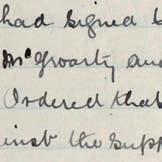 had signed b
McGroarty and
Ordered that
inst the supp